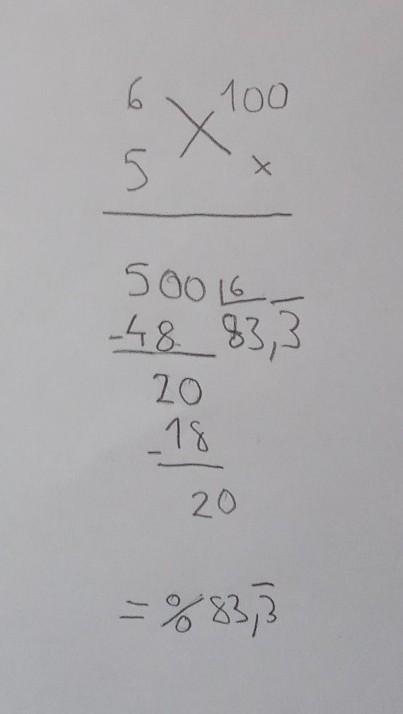 6 100
5 x
500 6
-48 83,3̅
20
-18
20
= % 83,3̅